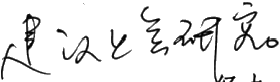 建议上会研究。